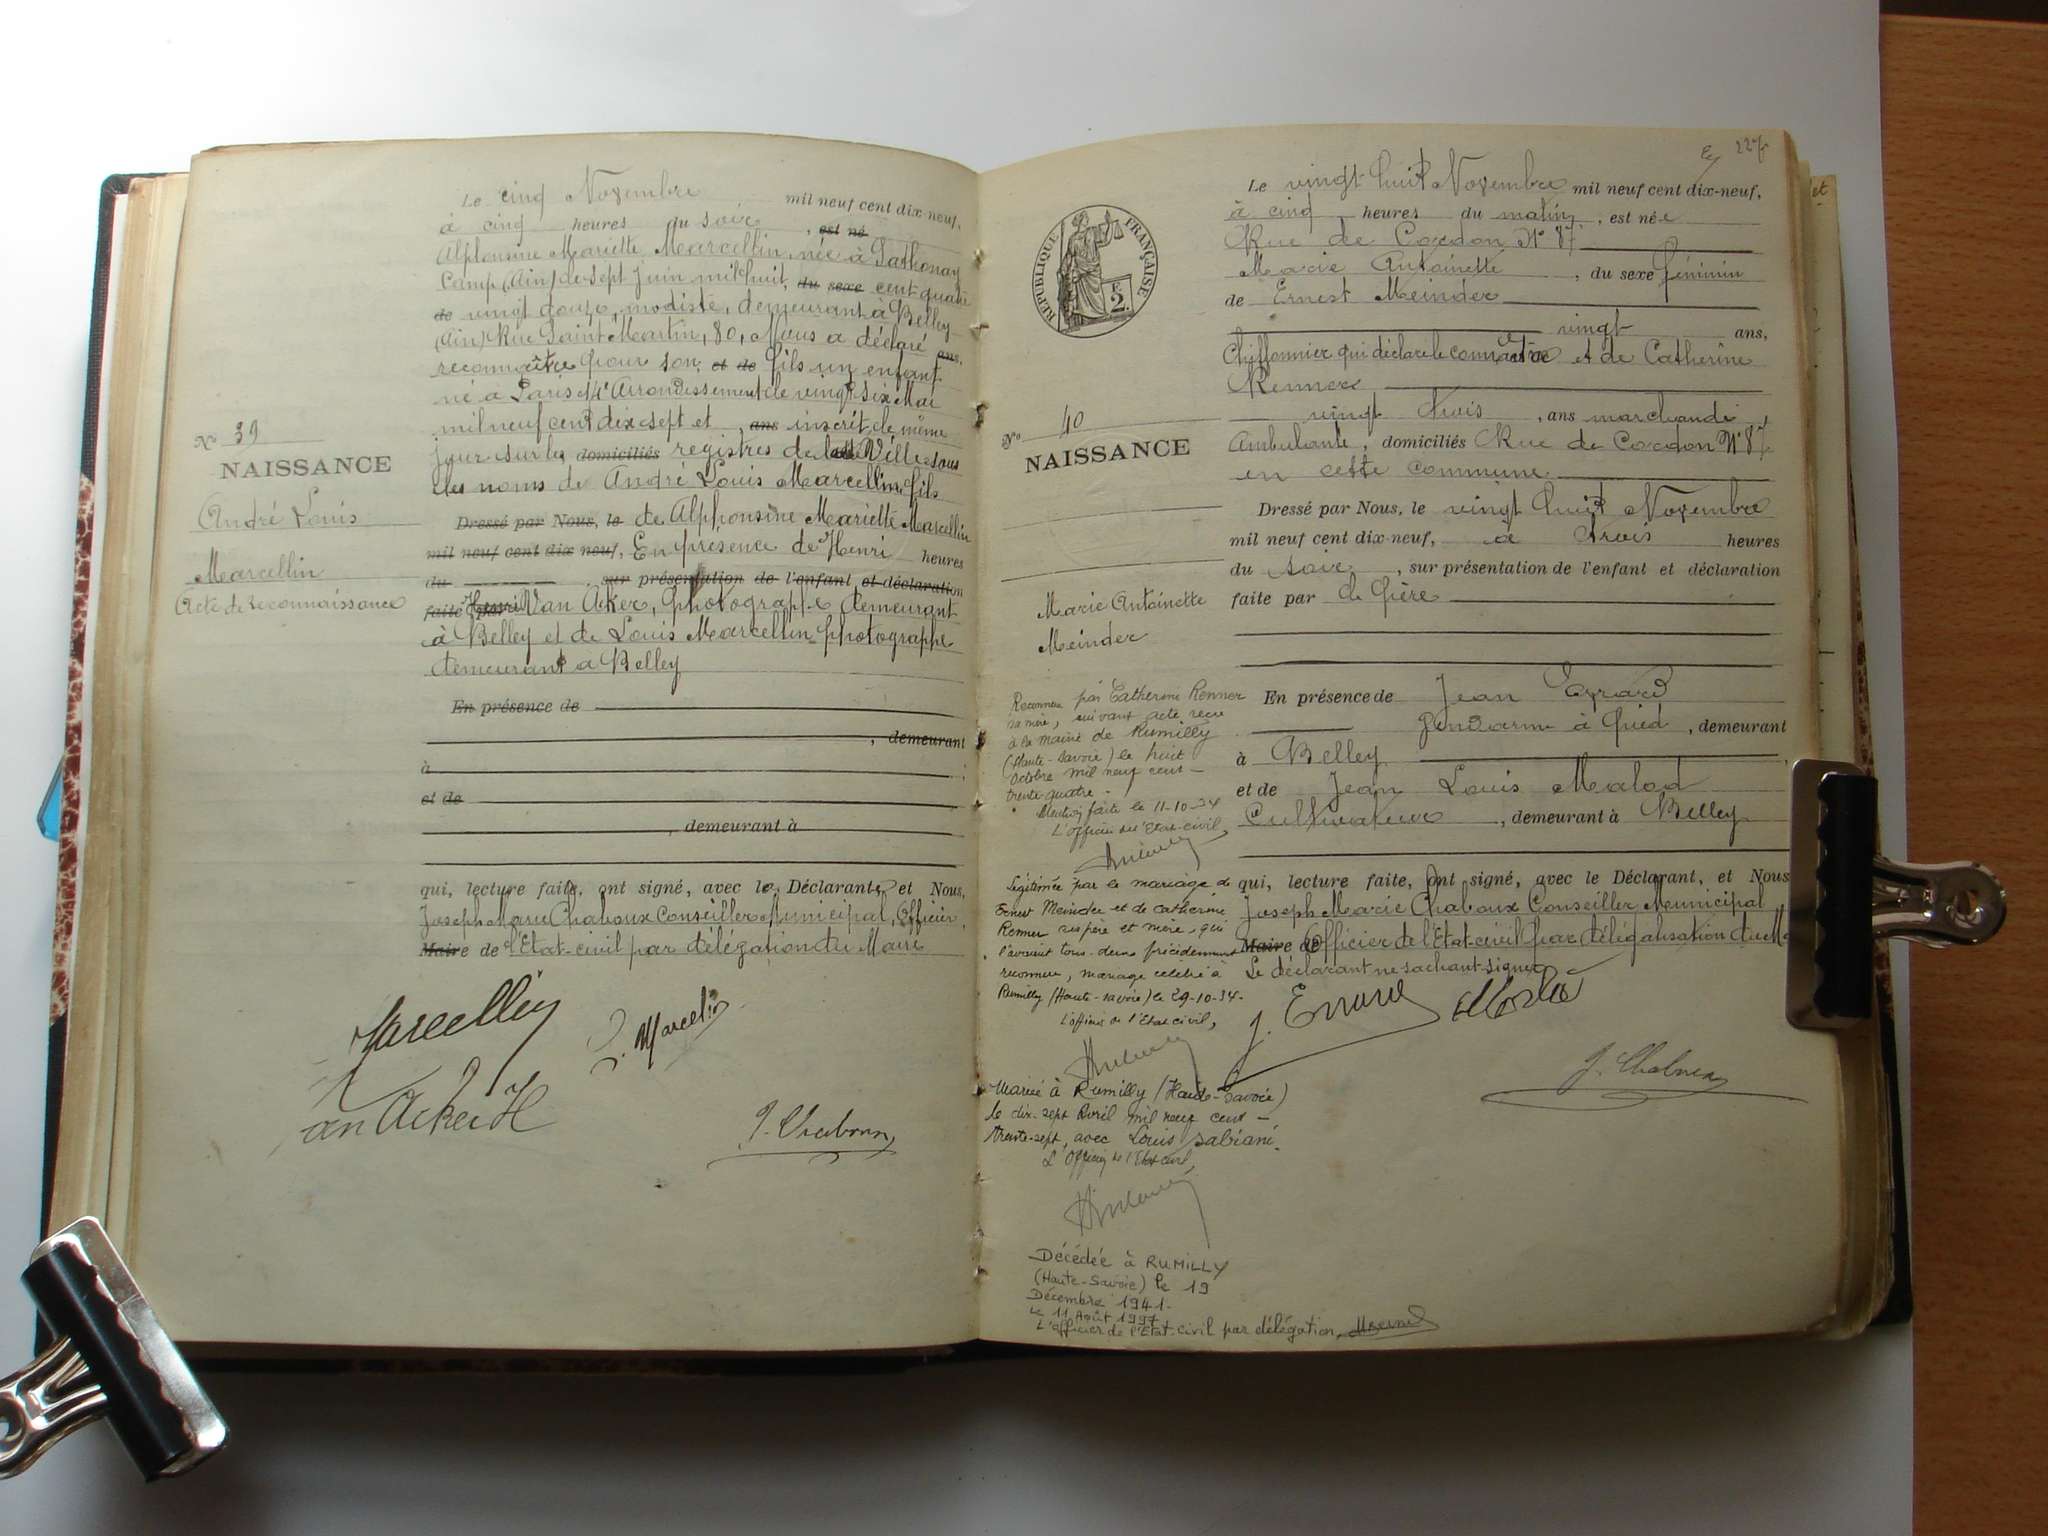 Le cinq Novembre mil neuf cent dix-neuf,
à cinq heures du soir, est né
Alphonsine Mariette Marcellin, née à Sathonay
Camp (Ain) le sept Juin mil huit, du sexe cent quatre
de vingt douze, modiste, demeurant à Belley
(Ain) Rue Saint Martin, 80, Nous a déclaré ans,
reconnaître pour son et de fils un enfant
né à Paris 14e Arrondissement le vingt six Mai
mil neuf cent dix sept et, ans inscrit le même
jour sur les domiciliés registres de la Ville sous
les noms de André Louis Marcellin fils
Dressé par Nous, le de Alphonsine Mariette Marcellin
mil neuf cent dix neuf, En présence de Henri heures
du , sur présentation de l'enfant et déclaration
faite par Henri Van Acker, photographe demeurant
à Belley et de Louis Marcellin photographe
demeurant à Belley
En présence de
, demeurant
à
et de
, demeurant à
qui, lecture faite, ont signé, avec le Déclarant, et Nous,
Joseph Marie Chaboux Conseiller Municipal, Officier
Maire de l'Etat-civil par délégation du Maire
N° 39
NAISSANCE
André Louis
Marcellin
Acte de reconnaissance
Marcellin
L. Marcellin
Van Acker H
J. Chaboux
227
Le vingt huit Novembre mil neuf cent dix-neuf,
à cinq heures du matin, est née
Rue de Cordon N° 87
Marie Antoinette, du sexe féminin
de Ernest Meinder
vingt ans,
Chiffonnier qui déclare le connaître et de Catherine
Renner
vingt trois, ans marchande
Ambulante, domiciliés Rue de Cordon N° 87
en cette commune
Dressé par Nous, le vingt huit Novembre
mil neuf cent dix-neuf, à trois heures
du soir, sur présentation de l'enfant et déclaration
faite par le père
En présence de Jean Errard
Gendarme à pied, demeurant
à Belley
et de Jean Louis Malod
Cultivateur, demeurant à Belley
qui, lecture faite, ont signé, avec le Déclarant, et Nous
Joseph Marie Chaboux Conseiller Municipal
Maire de Officier de l'Etat-civil par délégalisation du Ma
Le déclarant ne sachant signer
J. Errard
J. Chaboux
RÉPUBLIQUE FRANÇAISE
2.
N° 40
NAISSANCE
Marie Antoinette
Meinder
Reconnue par Catherine Renner
sa mère, suivant acte reçu
à la mairie de Rumilly
(Haute-Savoie) le huit
octobre mil neuf cent
trente-quatre.
Mention faite le 11-10-34
L'officier de l'Etat-civil,
Légitimée par le mariage de
Ernest Meinder et de Catherine
Renner ses père et mère, qui
l'avaient tous deux précédemment
reconnue, mariage célébré à
Rumilly (Haute-Savoie) le 29-10-34.
L'officier de l'Etat civil,
Mariée à Rumilly (Haute-Savoie)
le dix-sept Avril mil neuf cent
trente-sept, avec Louis Sabiani.
L'Officier de l'Etat civil,
Décédée à RUMILLY
(Haute-Savoie) le 19
Décembre 1941.
Le 11 Août 1997
L'officier de l'Etat-civil par délégation,